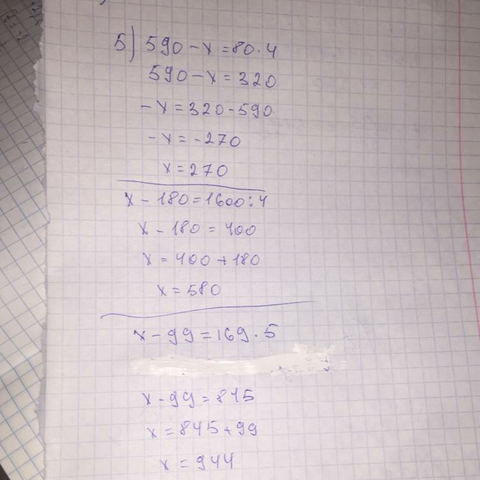 5) 590 - x = 80 · 4
590 - x = 320
- x = 320 - 590
- x = - 270
x = 270
x - 180 = 1600 : 4
x - 180 = 400
x = 400 + 180
x = 580
x - 99 = 169 · 5
x - 99 = 845
x = 845 + 99
x = 944